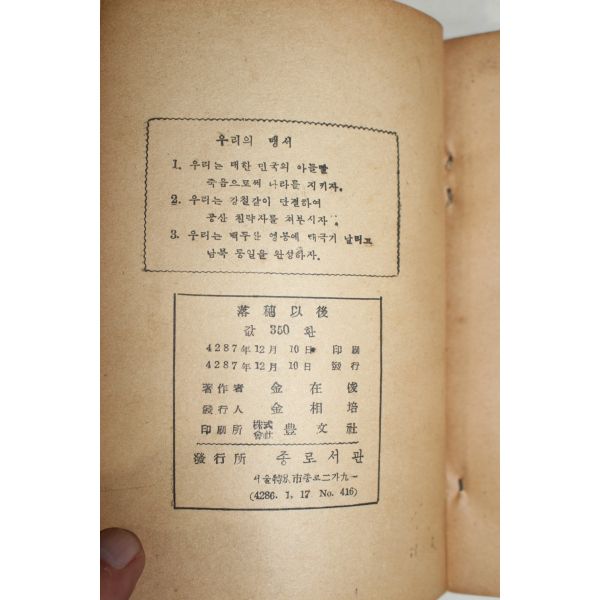 우리의 맹서
1. 우리는 대한 민국의 아들딸
죽음으로써 나라를 지키자.
2. 우리는 강철같이 단결하여
공산 침략자를 쳐부시자.
3. 우리는 백두산 영봉에 태극기 날리고
남북 통일을 완성하자.
落穗以後
값 350 환
4287年12月 10日 印刷
4287年12月 10日 發行
著作者 金在俊
發行人 金相培
印刷所 株式會社 豊文社
發行所 종로서관
서울特別市종로二가九一
(4286. 1. 17 No. 416)